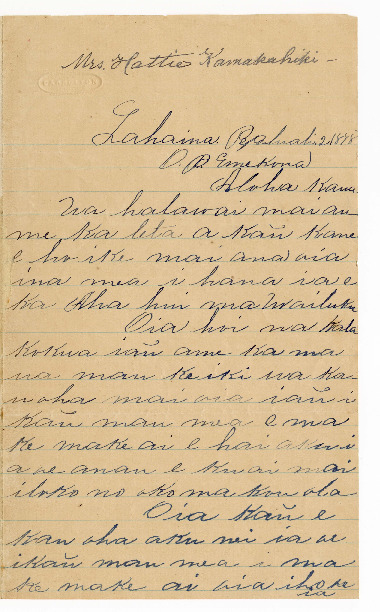 Mrs. Hattie Kamakahiki -
Lahaina 2. 1898
O. P. Emekona
Aloha Kaua.
Ua halawai mai au
me ka leta a kaũ kane
e ho-ike mai ana oia
ina mea i hana ia e
ka Aha hui ma Wailuku
Oia hoi na kala
kokua iaũ ame ka ma
ua mau keiki ua ka-
uoha mai oia iaũ i
kaũ mau mea e ma
ke make ai e hai aku i
a oe anau e kuai mai
iloko no oko makou ola
Oia kaũ e
kau oha aku nei ia oe
ikaũ mau mea i ma
ke make ai oia iho oe
ia